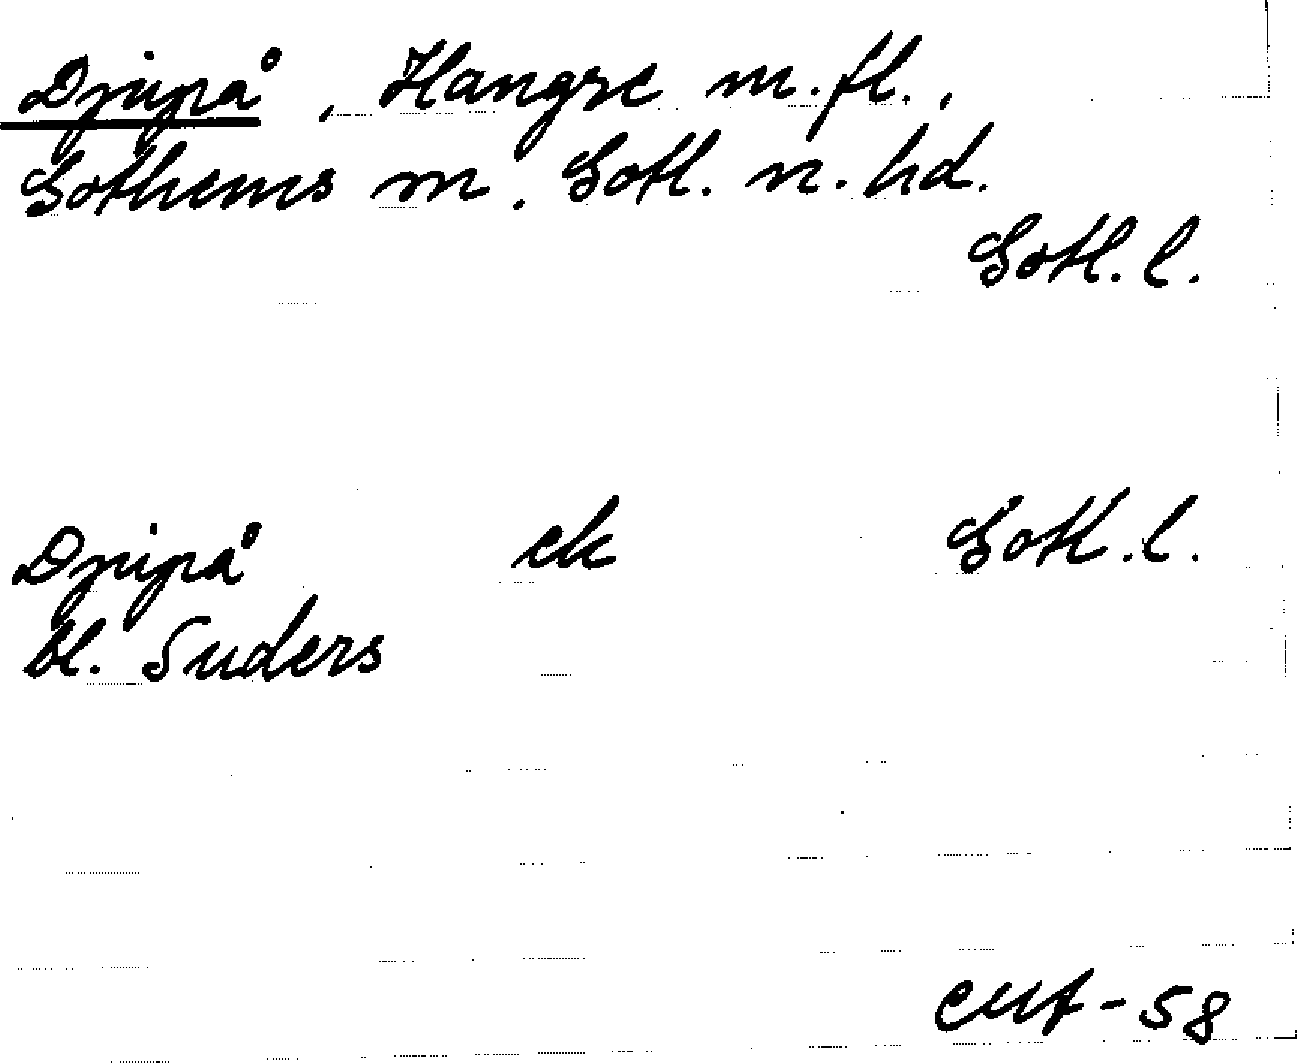 Djupå, Hangre m.fl.,
Gothems m. Gotl. n. hd.
Gotl. l.
Djupå ek Gotl. l.
bl. Suders
CMF-58